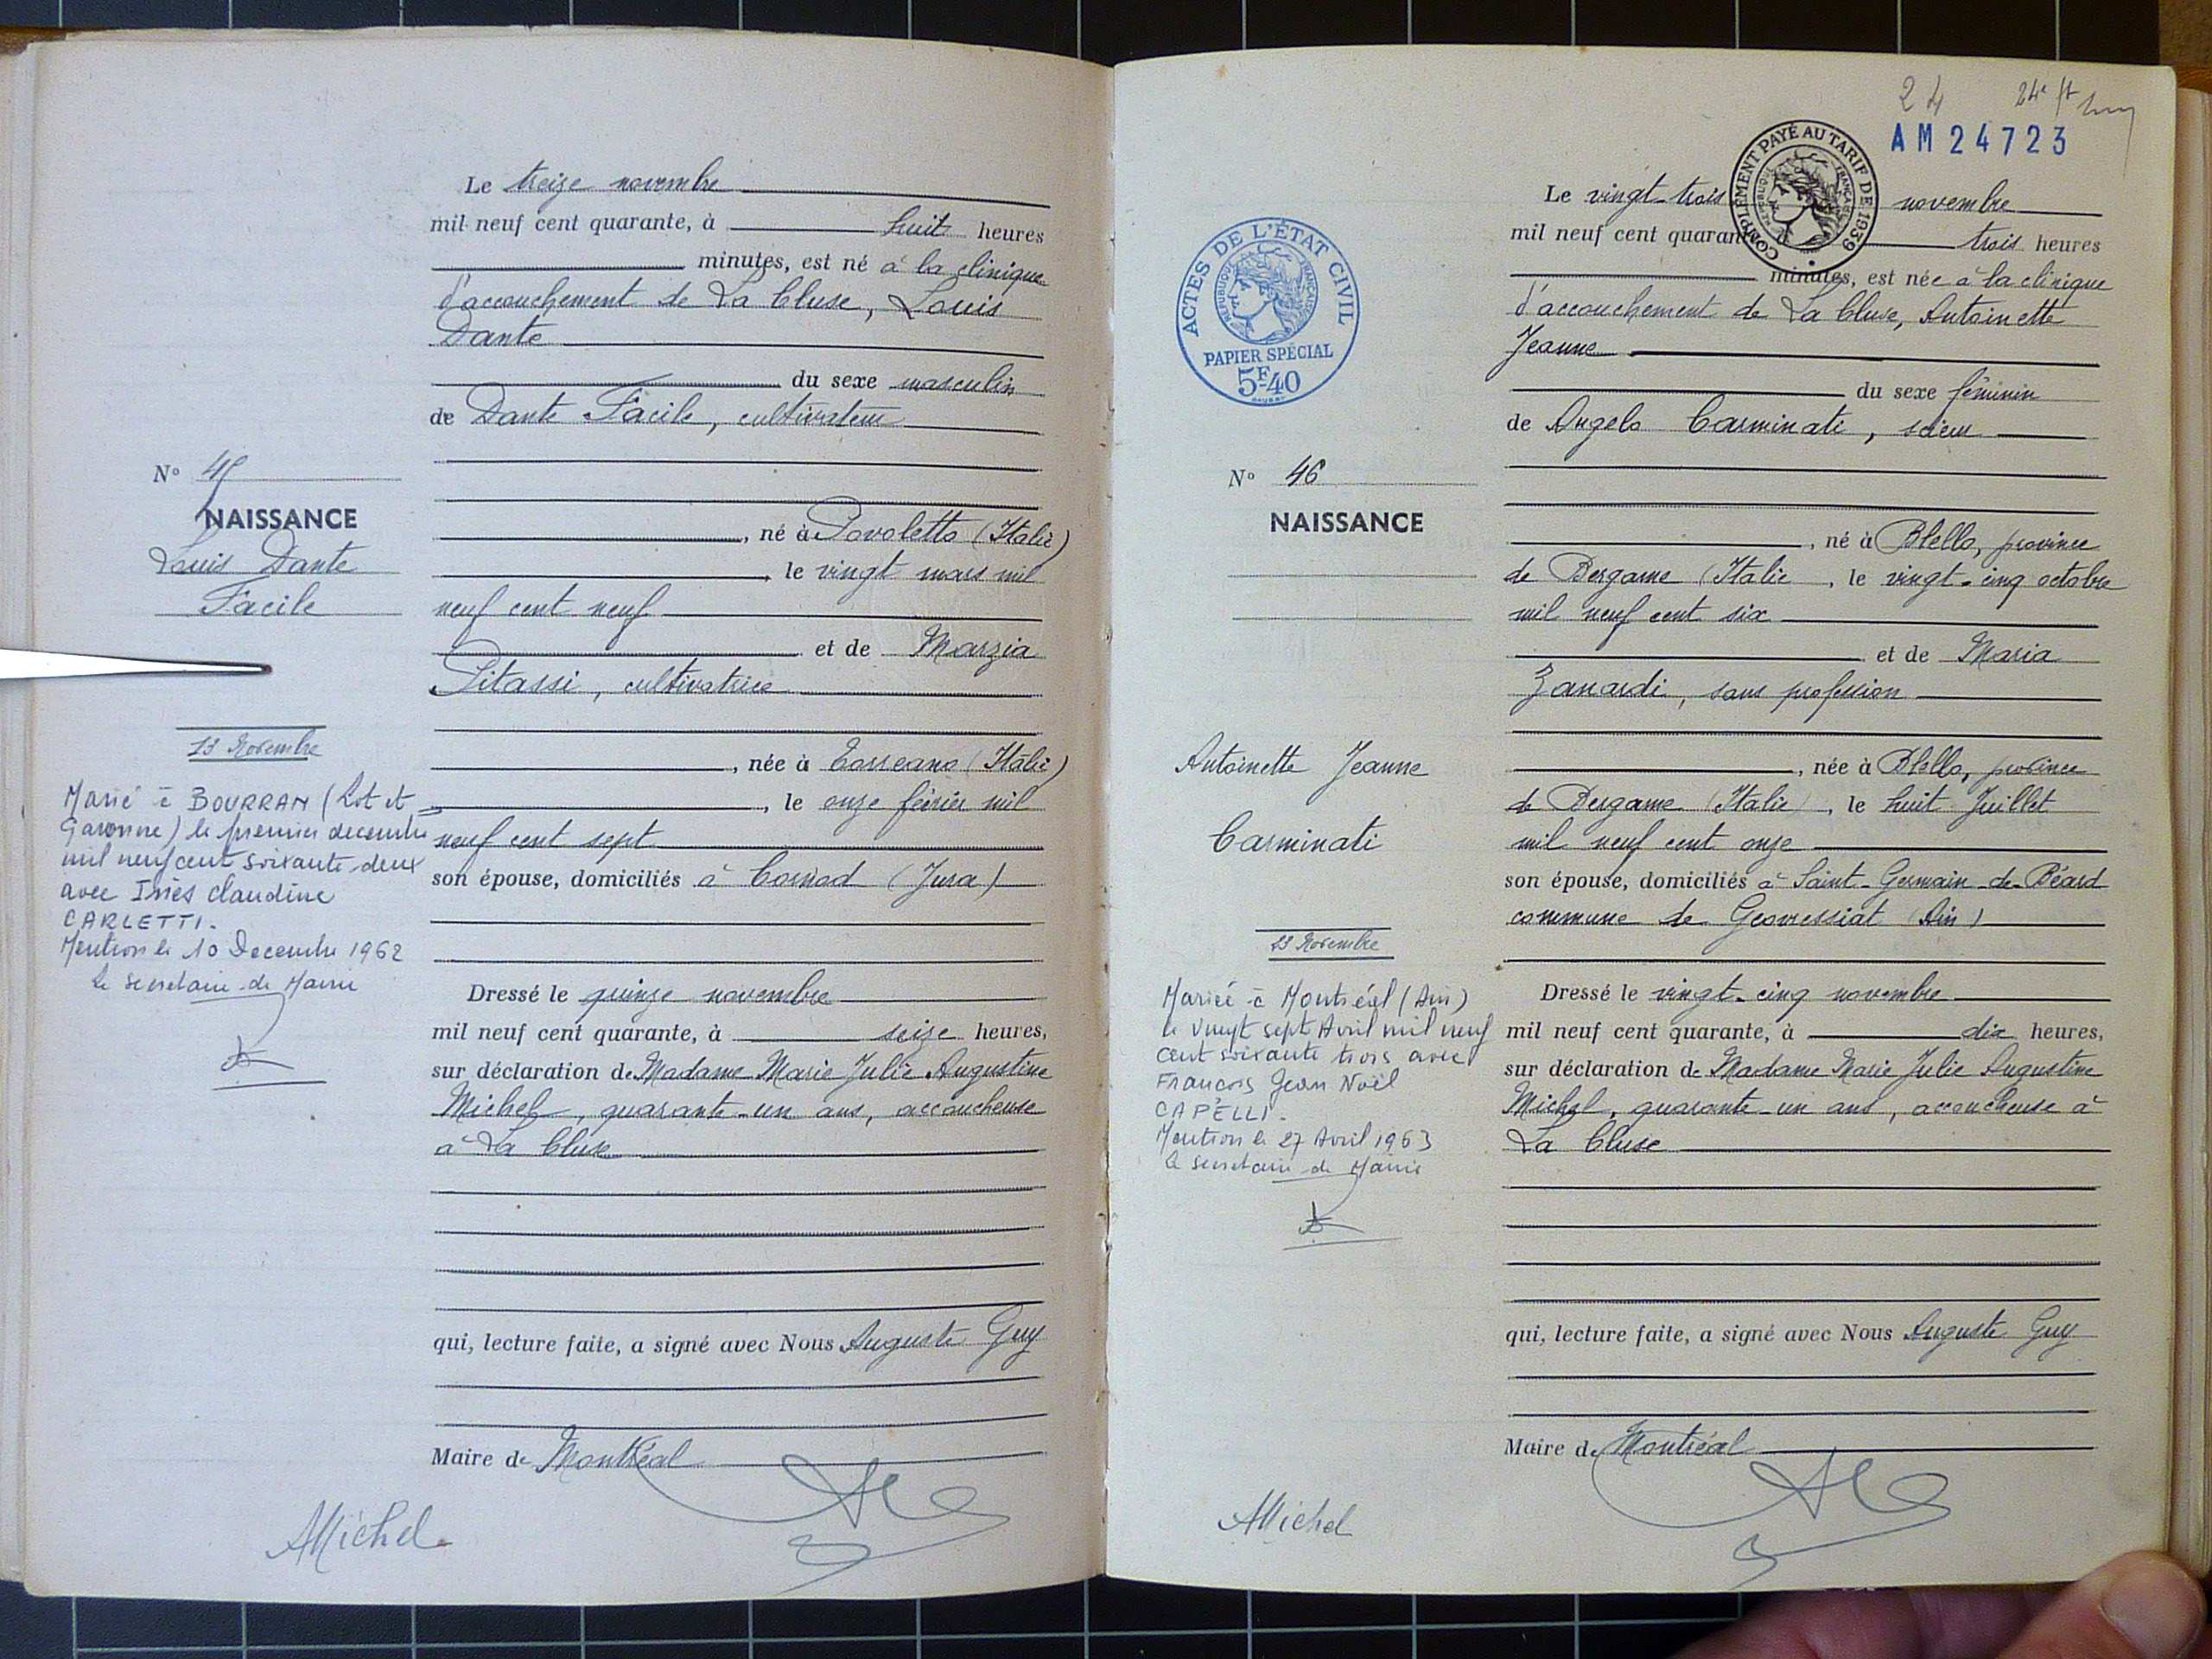 Le treize novembre
mil neuf cent quarante, à huit heures
minutes, est né à la clinique
d'accouchement de La Cluse, Louis
Dante
du sexe masculin
de Dante Facile, cultivateur
né à Povoletto (Italie)
, le vingt mars mil
neuf cent neuf
et de Marzia
Pitassi, cultivatrice
, née à Coseano (Italie)
, le onze février mil
neuf cent sept
son épouse, domiciliés à Cornod (Jura)
Dressé le quinze novembre
mil neuf cent quarante, à seize heures,
sur déclaration de Madame Marie Julie Augustine
Michel, quarante-un ans, accoucheuse
à La Cluse
qui, lecture faite, a signé avec Nous Auguste Guy
Maire de Montréal
AMichel
N° 45
NAISSANCE
Louis Dante
Facile
13 Novembre
Marié à BOURRAN (Lot et
Garonne) le premier decembre
mil neuf cent soixante-deux
avec Inès Claudine
CARLETTI.
Mention le 10 Decembre 1962
le secretaire de Mairie
24 24e
AM24723
COMPLÉMENT PAYÉ AU TARIF DE 1939
RÉPUBLIQUE FRANÇAISE
ACTES DE L'ÉTAT CIVIL
RÉPUBLIQUE FRANÇAISE
PAPIER SPÉCIAL
5F40
Le vingt-trois novembre
mil neuf cent quaran trois heures
minutes, est née à la clinique
d'accouchement de La Cluse, Antoinette
Jeanne
du sexe féminin
de Angelo Carminati, scieur
, né à Blello, province
de Bergame (Italie , le vingt-cinq octobre
mil neuf cent six
et de Maria
Zanardi, sans profession
, née à Blello, province
de Bergame (Italie) , le huit Juillet
mil neuf cent onze
son épouse, domiciliés à Saint-Germain-de-Béard
commune de Géovressiat (Ain)
Dressé le vingt-cinq novembre
mil neuf cent quarante, à dix heures,
sur déclaration de Madame Marie Julie Augustine
Michel, quarante-un ans, accoucheuse à
La Cluse
qui, lecture faite, a signé avec Nous Auguste Guy
Maire de Montréal
AMichel
N° 46
NAISSANCE
Antoinette Jeanne
Carminati
23 Novembre
Mariée à Montréal (Ain)
le vingt sept Avril mil neuf
cent soixante trois avec
François Jean Noël
CAPELLI.
Mention le 27 Avril 1963
le secretaire de Mairie